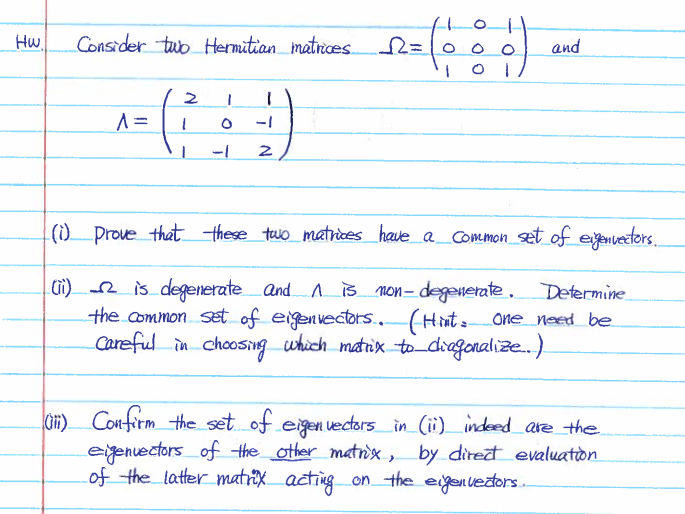 HW. Consider two Hermitian matrices Ω = (1 0 1; 0 0 0; 1 0 1) and
Λ = (2 1 1; 1 0 -1; 1 -1 2)
(i) Prove that these two matrices have a common set of eigenvectors.
(ii) Ω is degenerate and Λ is non-degenerate. Determine
the common set of eigenvectors. (Hint: One need be
careful in choosing which matrix to diagonalize.)
(iii) Confirm the set of eigenvectors in (ii) indeed are the
eigenvectors of the other matrix, by direct evaluation
of the latter matrix acting on the eigenvectors.